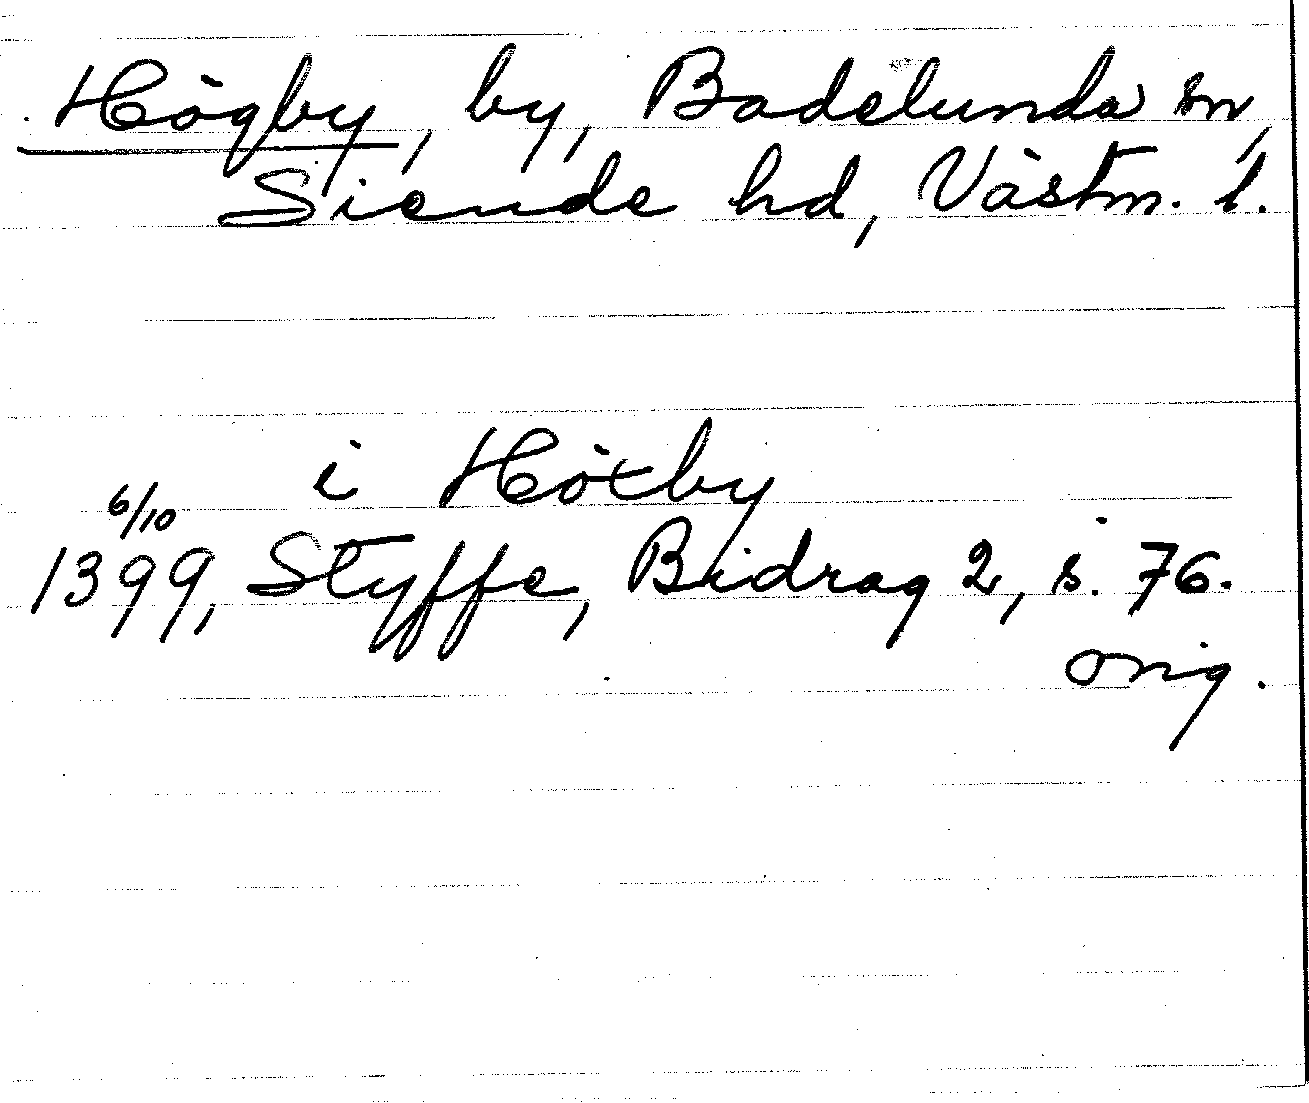 Högby, by, Badelunda sn,
Siende hd, Västm. l.
i Höxby
6/10
1399, Styffe, Bidrag 2, s. 76.
orig.